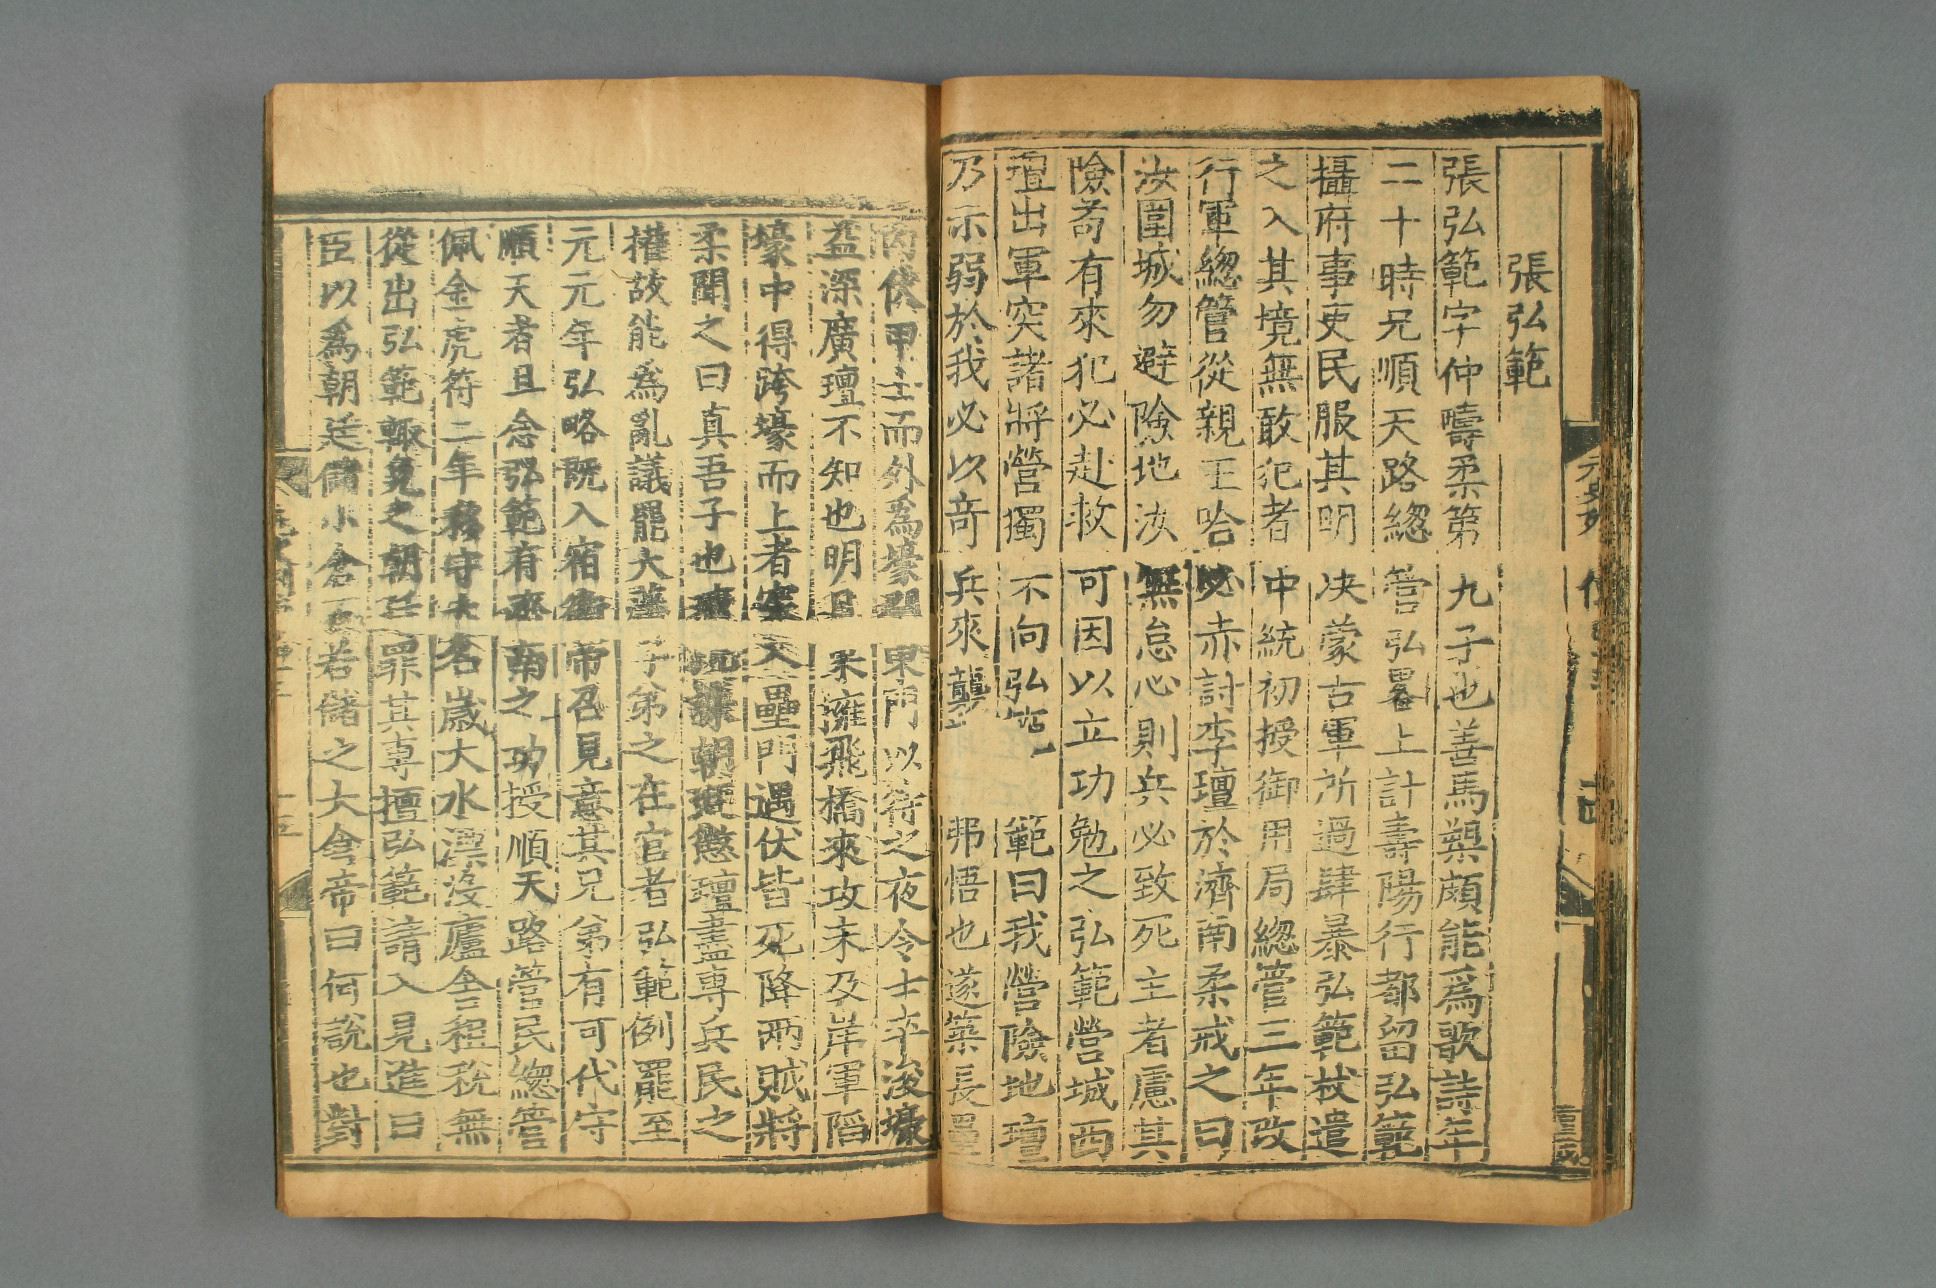 張弘範
張弘範字仲疇柔第九子也善馬槊頗能爲歌詩年
二十時兄順天路緫管弘畧上計壽陽行都留弘範
攝府事吏民服其明决蒙古軍所過肆暴弘範杖遣
之入其境無敢犯者中統初授御用局緫管三年改
行軍緫管從親王哈必赤討李璮於濟南柔戒之曰
汝圍城勿避險地汝無怠心則兵必致死主者慮其
險苟有來犯必赴救可因以立功勉之弘範營城西
璮出軍突諸將營獨不向弘範曰我營險地璮
乃示弱於我必以奇兵來襲弗悟也遂築長壘
内伏甲士而外爲壕開東門以待之夜令士卒浚壕
益深廣璮不知也明日果擁飛橋來攻未及岸軍陷
壕中得跨壕而上者突入壘門遇伏皆死降兩賊將
柔聞之曰真吾子也璮誅朝廷懲璮盡專兵民之
權故能爲亂議罷大藩子弟之在官者弘範例罷至
元元年弘略既入宿衛帝召見意其兄弟有可代守
順天者且念弘範有濟南之功授順天路管民緫管
佩金虎符二年移守大名歲大水漂没廬舍租稅無
從出弘範輒免之朝廷罪其專擅弘範請入見進曰
臣以爲朝廷儲小倉不若儲之大倉帝曰何說也對
十五